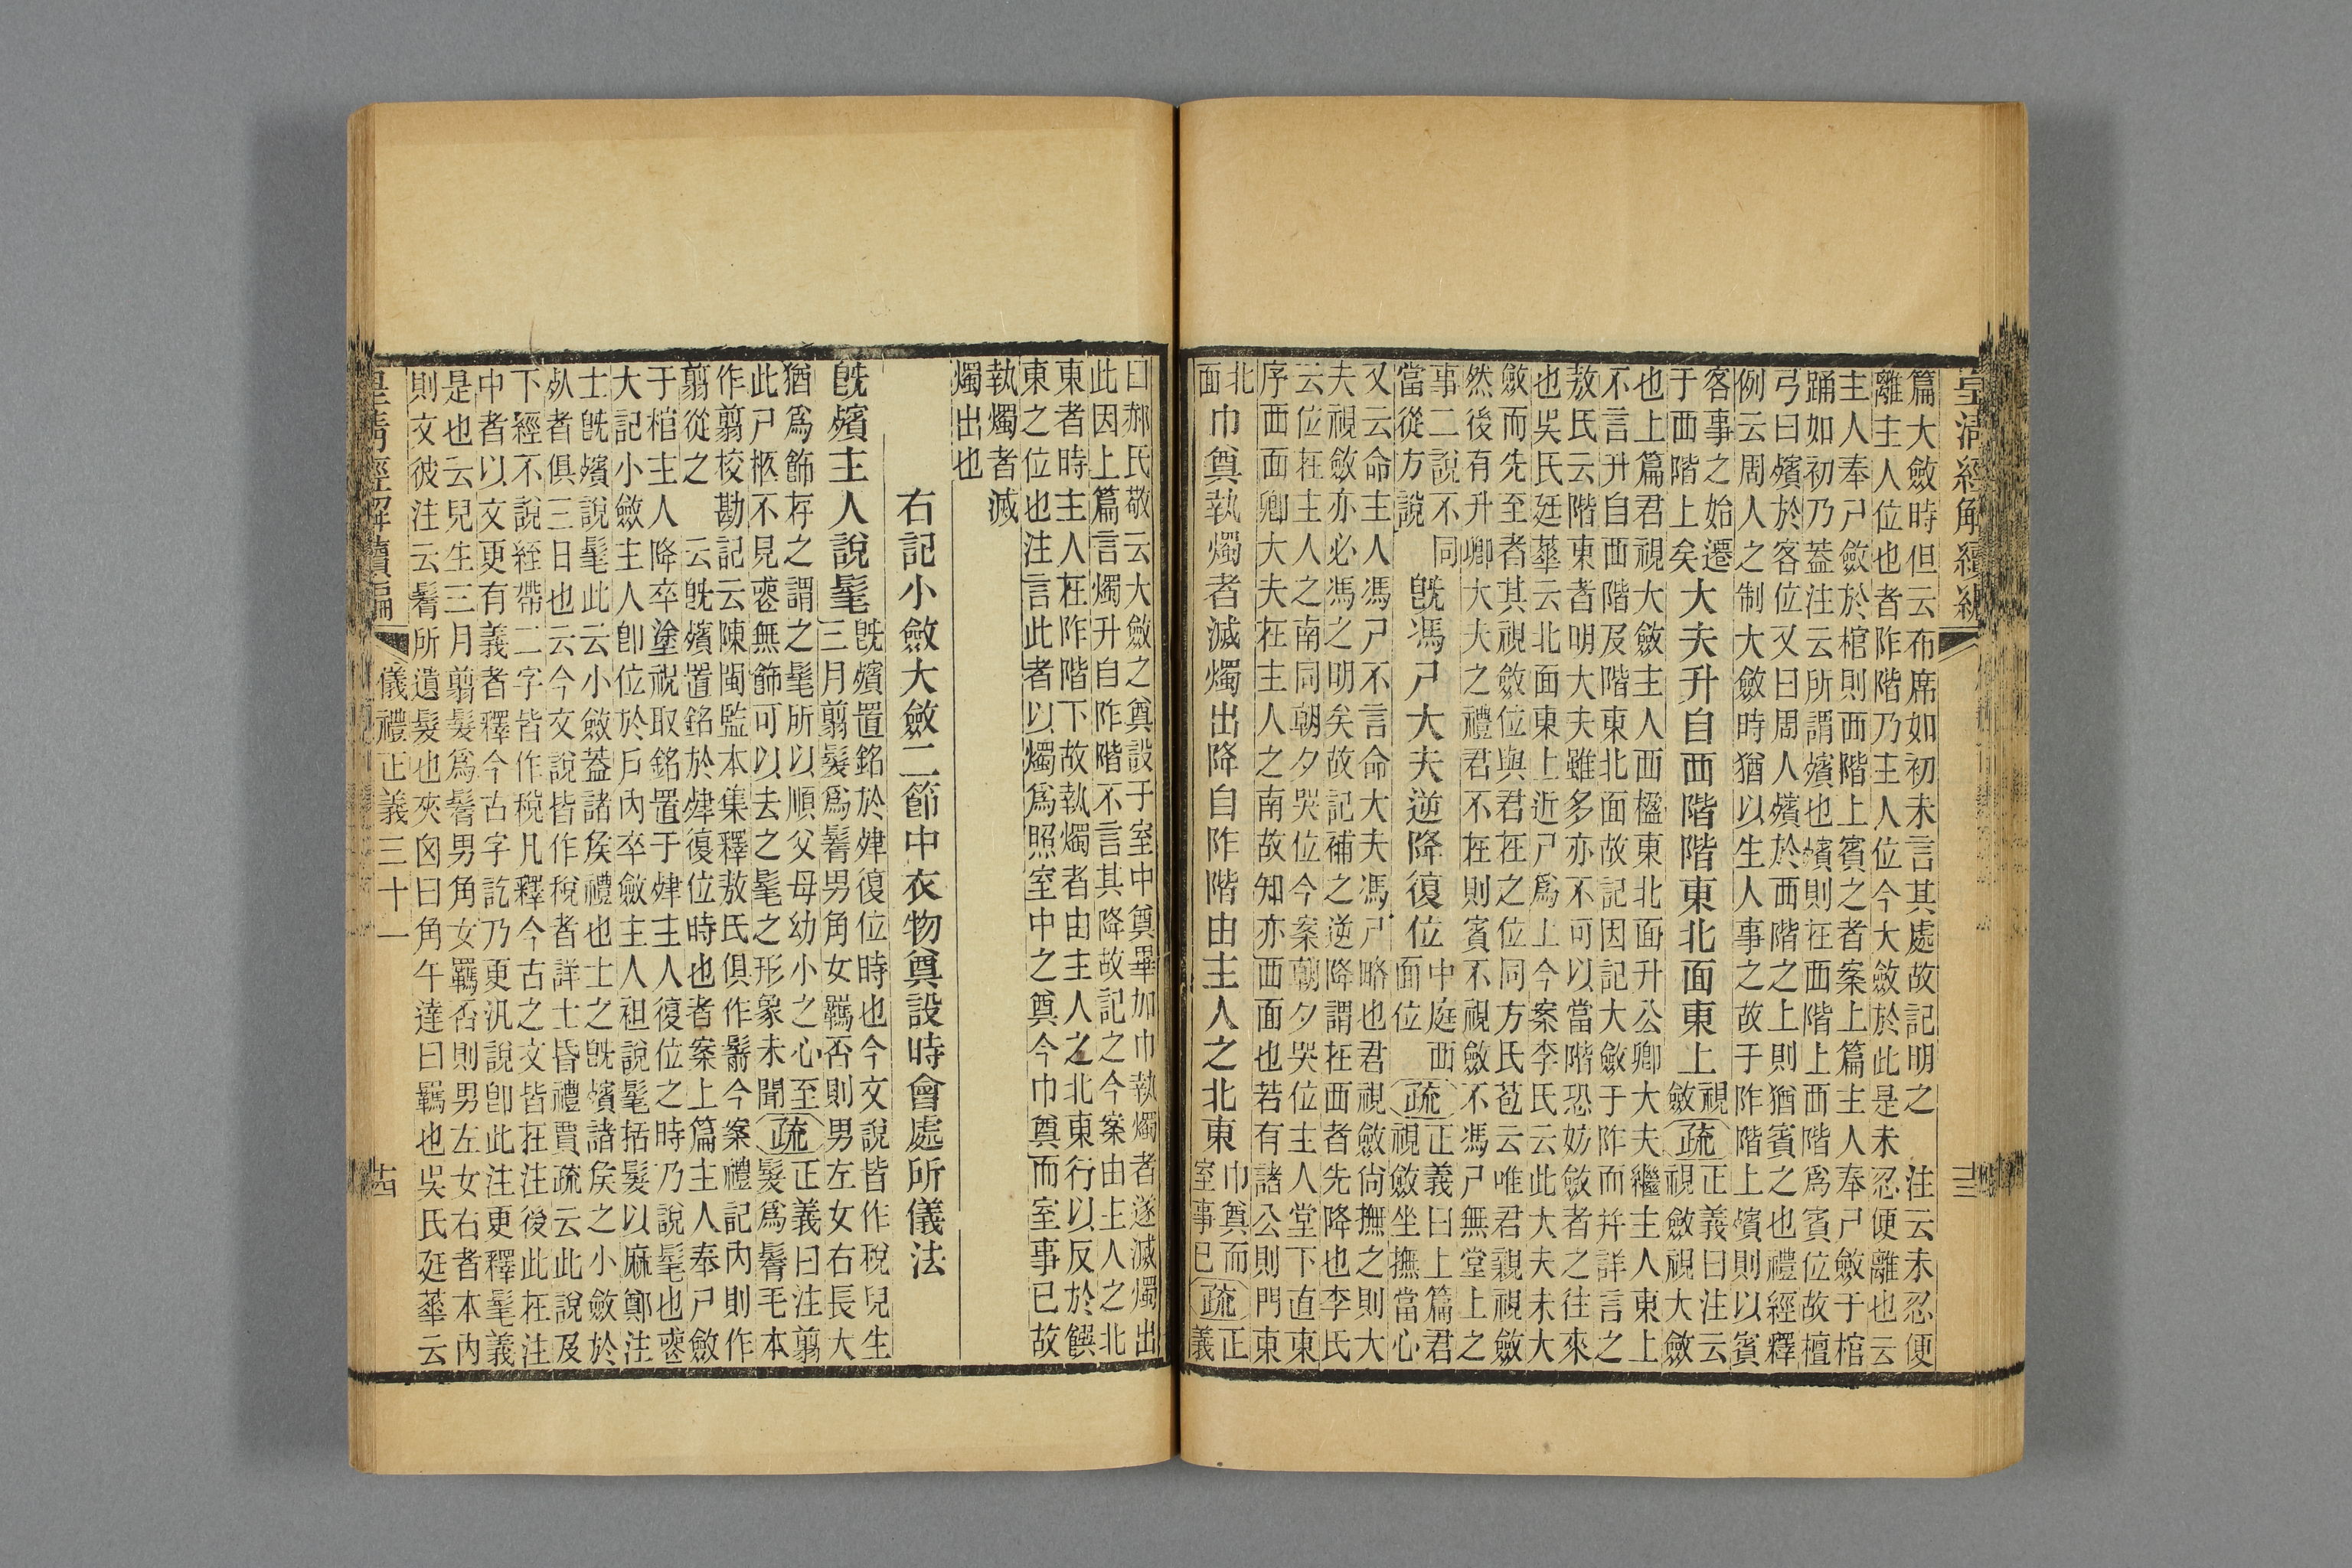 皇清經解續編
十三
篇大斂時但云布席如初未言其處故記明之　注云未忍便
離主人位也者阼階乃主人位今大斂於此是未忍便離也云
主人奉尸斂於棺則西階上賓之者案上篇主人奉尸斂于棺
踊如初乃蓋注云所謂殯也殯則在西階上西階爲賓位故檀
弓曰殯於客位又曰周人殯於西階之上則猶賓之也禮經釋
例云周人之制大斂時猶以生人事之故于阼階上殯則以賓
客事之始遷
于西階上矣
大夫升自西階階東北面東上
視
斂
疏
正義曰注云
視斂視大斂
也上篇君視大斂主人西楹東北面升公卿大夫繼主人東上
不言升自西階及階東北面故記因記大斂于阼而并詳言之
敖氏云階東者明大夫雖多亦不可以當階恐妨斂者之往來
也吳氏廷華云北面東上近尸爲上今案李氏云此大夫未大
斂而先至者其視斂位與君在之位同方氏苞云唯君親視斂
然後有升卿大夫之禮君不在則賓不視斂不馮尸無堂上之
事二說不同
當從方說
既馮尸大夫逆降復位
中庭西
面位
疏
正義曰上篇君
視斂坐撫當心
又云命主人馮尸不言命大夫馮尸略也君視斂尙撫之則大
夫視斂亦必馮之明矣故記補之逆降謂在西者先降也李氏
云位在主人之南同朝夕哭位今案朝夕哭位主人堂下直東
序西面卿大夫在主人之南故知亦西面也若有諸公則門東
北
面
巾奠執燭者滅燭出降自阼階由主人之北東
巾奠而
室事已
疏
正
義
曰郝氏敬云大斂之奠設于室中奠畢加巾執燭者遂滅燭出
此因上篇言燭升自阼階不言其降故記之今案由主人之北
東者時主人在阼階下故執燭者由主人之北東行以反於饌
東之位也注言此者以燭爲照室中之奠今巾奠而室事已故
執燭者滅
燭出也
右記小斂大斂二節中衣物奠設時會處所儀法
既殯主人說髦
既殯置銘於肂復位時也今文說皆作稅兒生
三月翦髮爲鬌男角女羈否則男左女右長大
猶爲飾存之謂之髦所以順父母幼小之心至
此尸柩不見喪無飾可以去之髦之形象未聞
疏
正義曰注翦
髮爲鬌毛本
作翦校勘記云陳閩監本集釋敖氏俱作鬋今案禮記內則作
翦從之　云既殯置銘於肂復位時也者案上篇主人奉尸斂
于棺主人降卒塗祝取銘置于肂主人復位之時乃說髦也喪
大記小斂主人卽位於戶內卒斂主人袒說髦括髮以麻鄭注
士既殯說髦此云小斂蓋諸矦禮也士之既殯諸矦之小斂於
𣦸者俱三日也云今文說皆作稅者詳士昏禮賈疏云此說及
下經不說絰帶二字皆作稅凡釋今古之文皆在注後此在注
中者以文更有義者釋今古字訖乃更汎說卽此注更釋髦義
是也云兒生三月翦髮爲鬌男角女羈否則男左女右者本內
則文彼注云鬌所遺髮也夾囟曰角午達曰羈也吳氏廷華云
皇清經解續編
儀禮正義三十一
十四